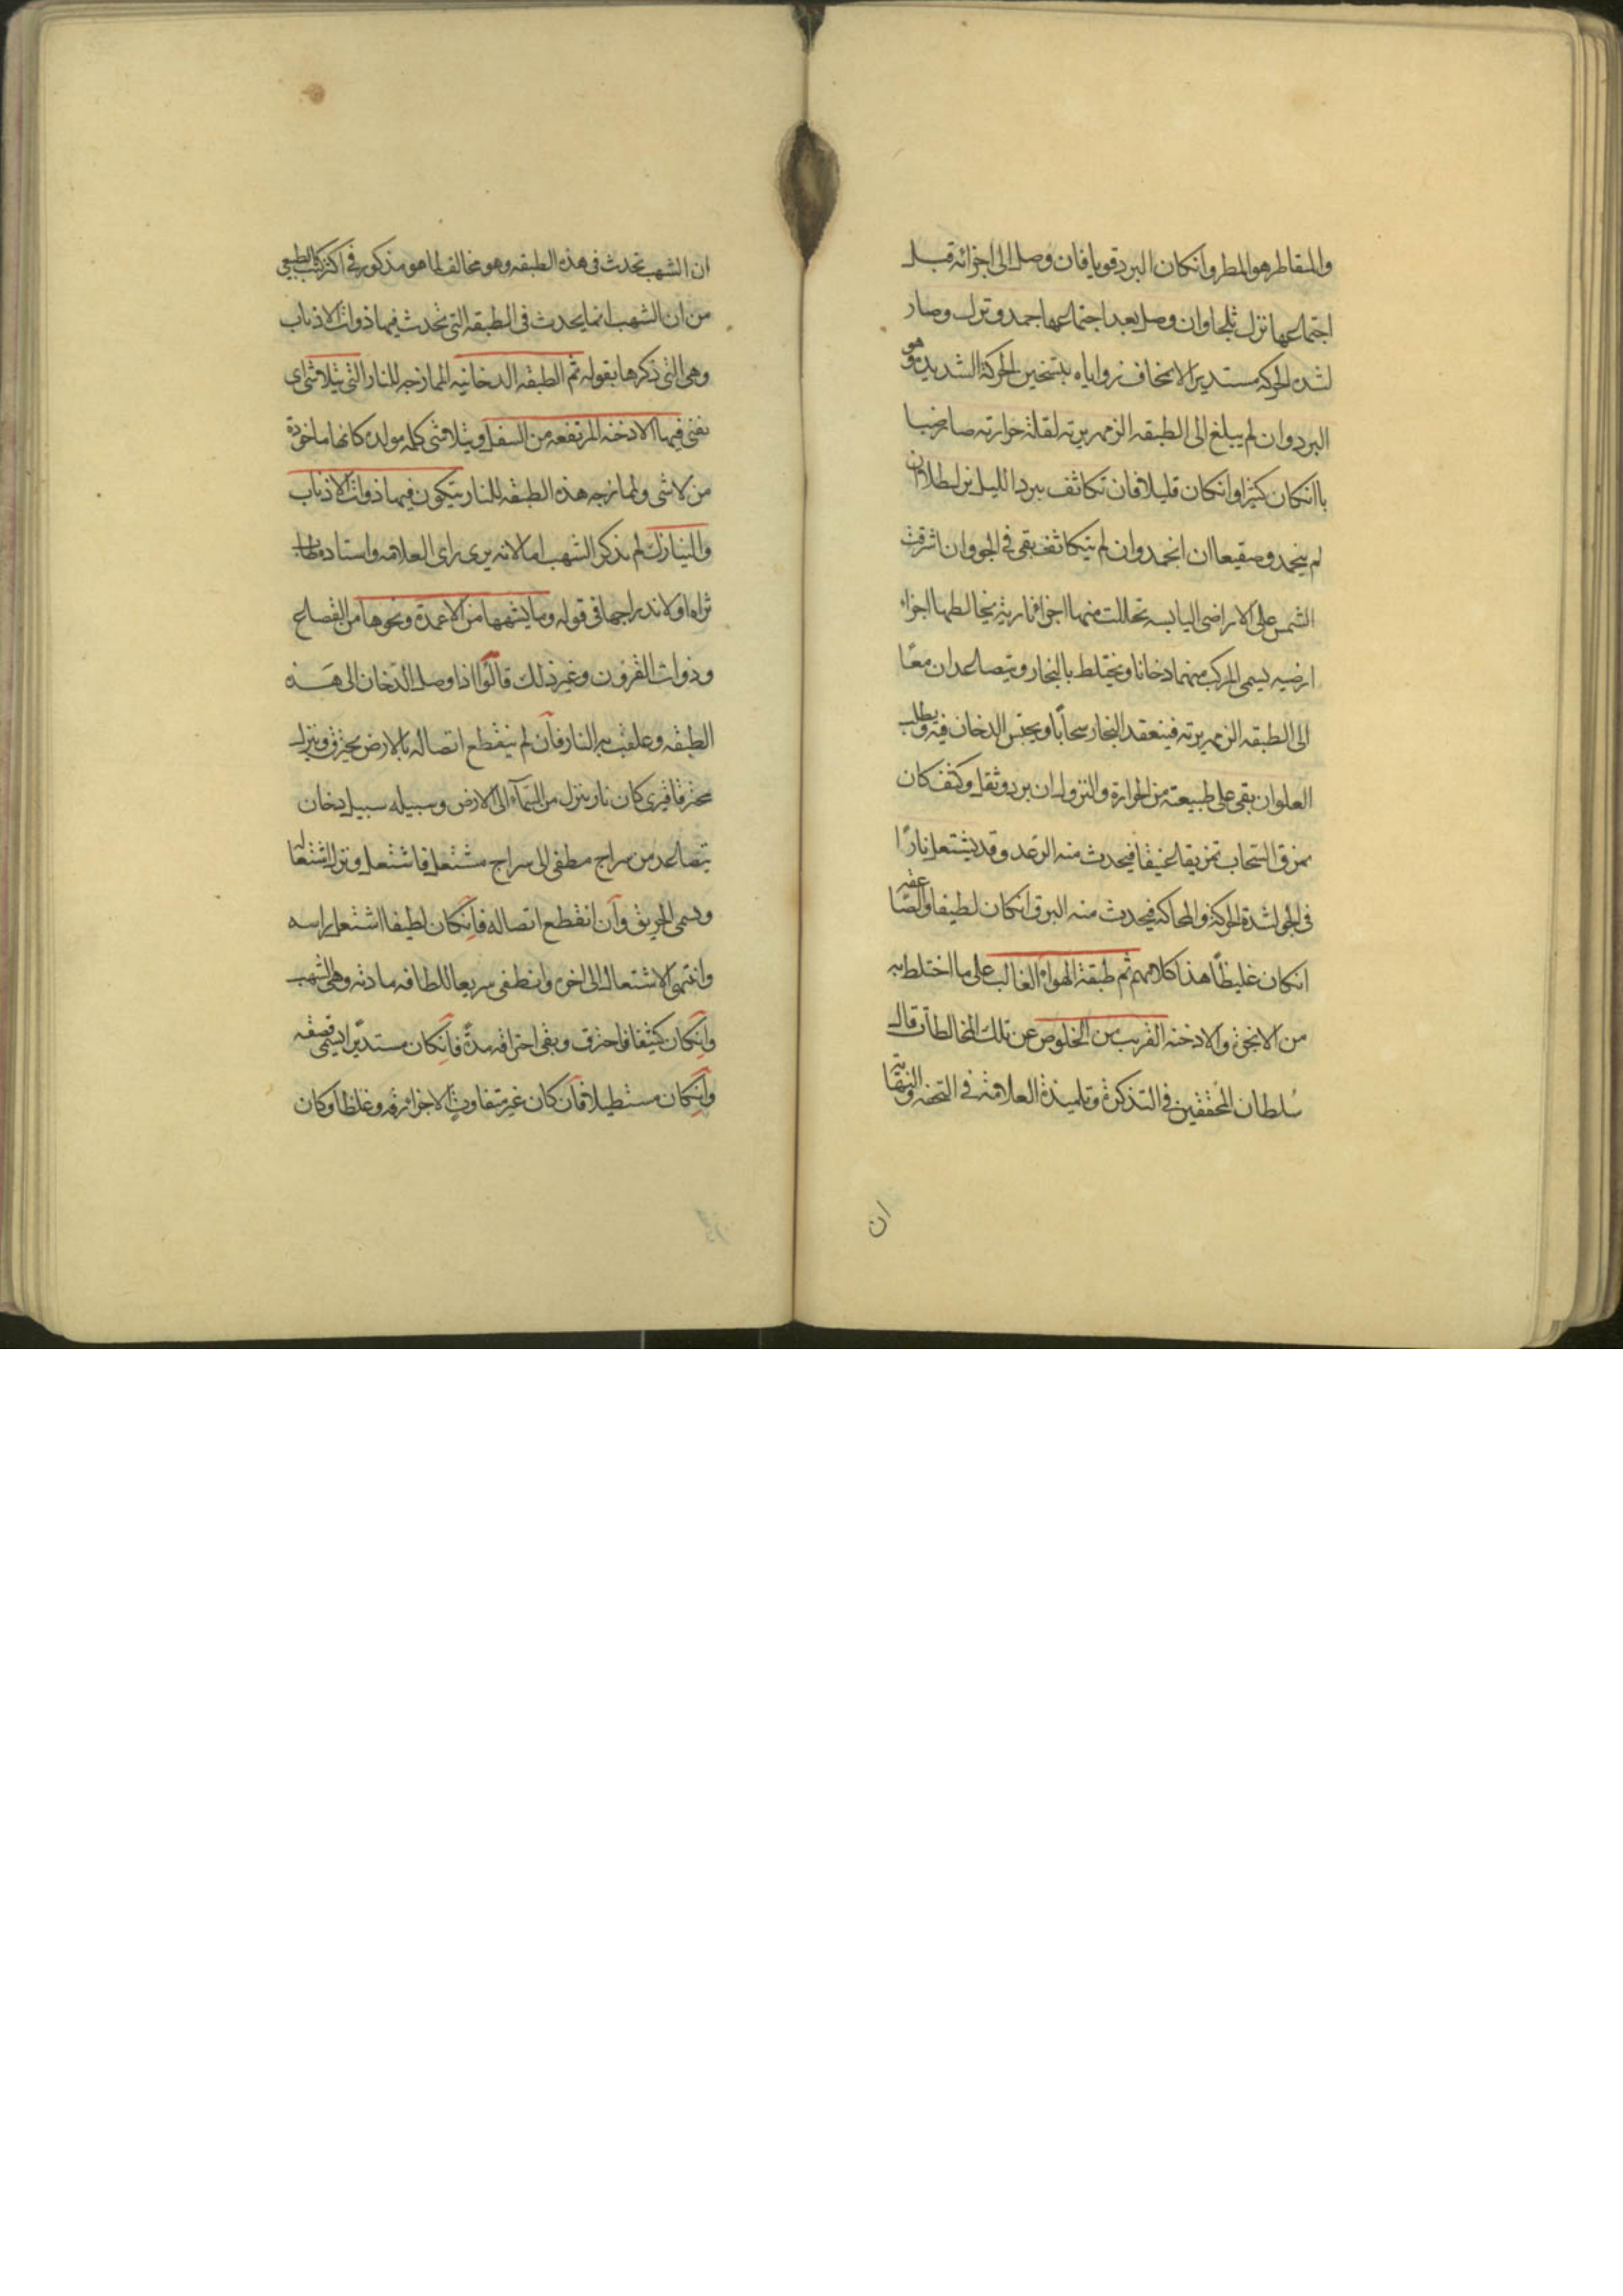 والمتقاطر هو المطر وانكان البرد قويا فان وصل الى اجزائه قبل
اجتماعها نزل ثلجا وان وصل بعد اجتماعها جمد ونزل وصار
لشدة الحركة مستديرا لانمحاف زواياه بتسخين الحركة الشديدة وهو
البرد وان لم يبلغ الى الطبقه الزمهريرية لقلة حرارته صار ضبا
با انكان كثيرا وانكان قليلا فان تكاثف ببرد الليل نزل طلا ان
لم ينجمد وصقيعا ان انجمد وان لم يتكاثف بقى فى الجو وان اشرقت
الشمس على الاراضى اليابسه تحللت منها اجزا نارية يخالطها اجزاء
ارضيه يسمى المركب منهما دخانا ويختلط بالبخار ويتصاعدان معًا
الى الطبقه الزمهريرية فينعقد البخار سحابًا ويحتبس الدخان فيه ويطلب
العلو ان بقى على طبيعته من الحرارة والنزول ان برد وثقل وكثف كان
يمزق السّحاب تمزيقا عنيفا فيحدث منه الرّعد وقد يشتعل نارًا
فى الجو لشدة الحركة والمحاكة فيحدث منه البرق انكان لطيفا والصّاعقه
انكان غليظًا هذا كلامهم ثم طبقة الهواء الغالب على ما اختلط به
من الابخرة والادخنه القريب من الخلوص عن تلك المخالطات قال
سلطان المحققين فى التذكرة وتلميذة العلامة فى التحفه والنهاية
ان
ان الشهب تحدث فى هذه الطبقه وهو مخالف لما هو مذكور فى اكثر كتب الطبيعى
من ان الشهب انما يحدث فى الطبقه التى تحدث فيها ذوات الاذناب
وهى التى ذكرها بقوله ثم الطبقه الدخانيه الممازجه للنار التى يتلاشى اى
تفنى فيها الادخنه المرتفعه من السفل ويتلاشى كلمه مولده كانها ماخوذة
من لاشى ولممازجه هذه الطبقه للنار يتكون فيها ذوات الاذناب
والنيازك لم يذكر الشهب اما لانه يرى راى العلامه واستاده طاب
ثراه او لاندراجها فى قوله وما يشبهها من الاعمدة ونحوها من القصاع
وذوات القرون وغير ذلك قالوا اذا وصل الدّخان الى هذه
الطبقه وعلقت به النار فان لم ينقطع اتصاله بالارض يحترق وينزل
محترقا فيرى كان نار ينزل من السّمآء الى الارض وسبيله سبيل دخان
يتصاعد من سراج مطفى الى سراج مشتعل فاشتعل ونزل اشتعالا
ويسمى الحريق وان انقطع اتصاله فانكان لطيفا اشتعل راسه
وانتهى الاشتعال الى اخره وانطفى سريعا للطافه مادته وهى الشهب
وانكان كثيفا فاحترق وبقى احتراقه مدةً فانكان مستديرا يسمى قصعه
وانكان مستطيلا فان كان غير متفاوت الاجزا رقه وغلظا وكان